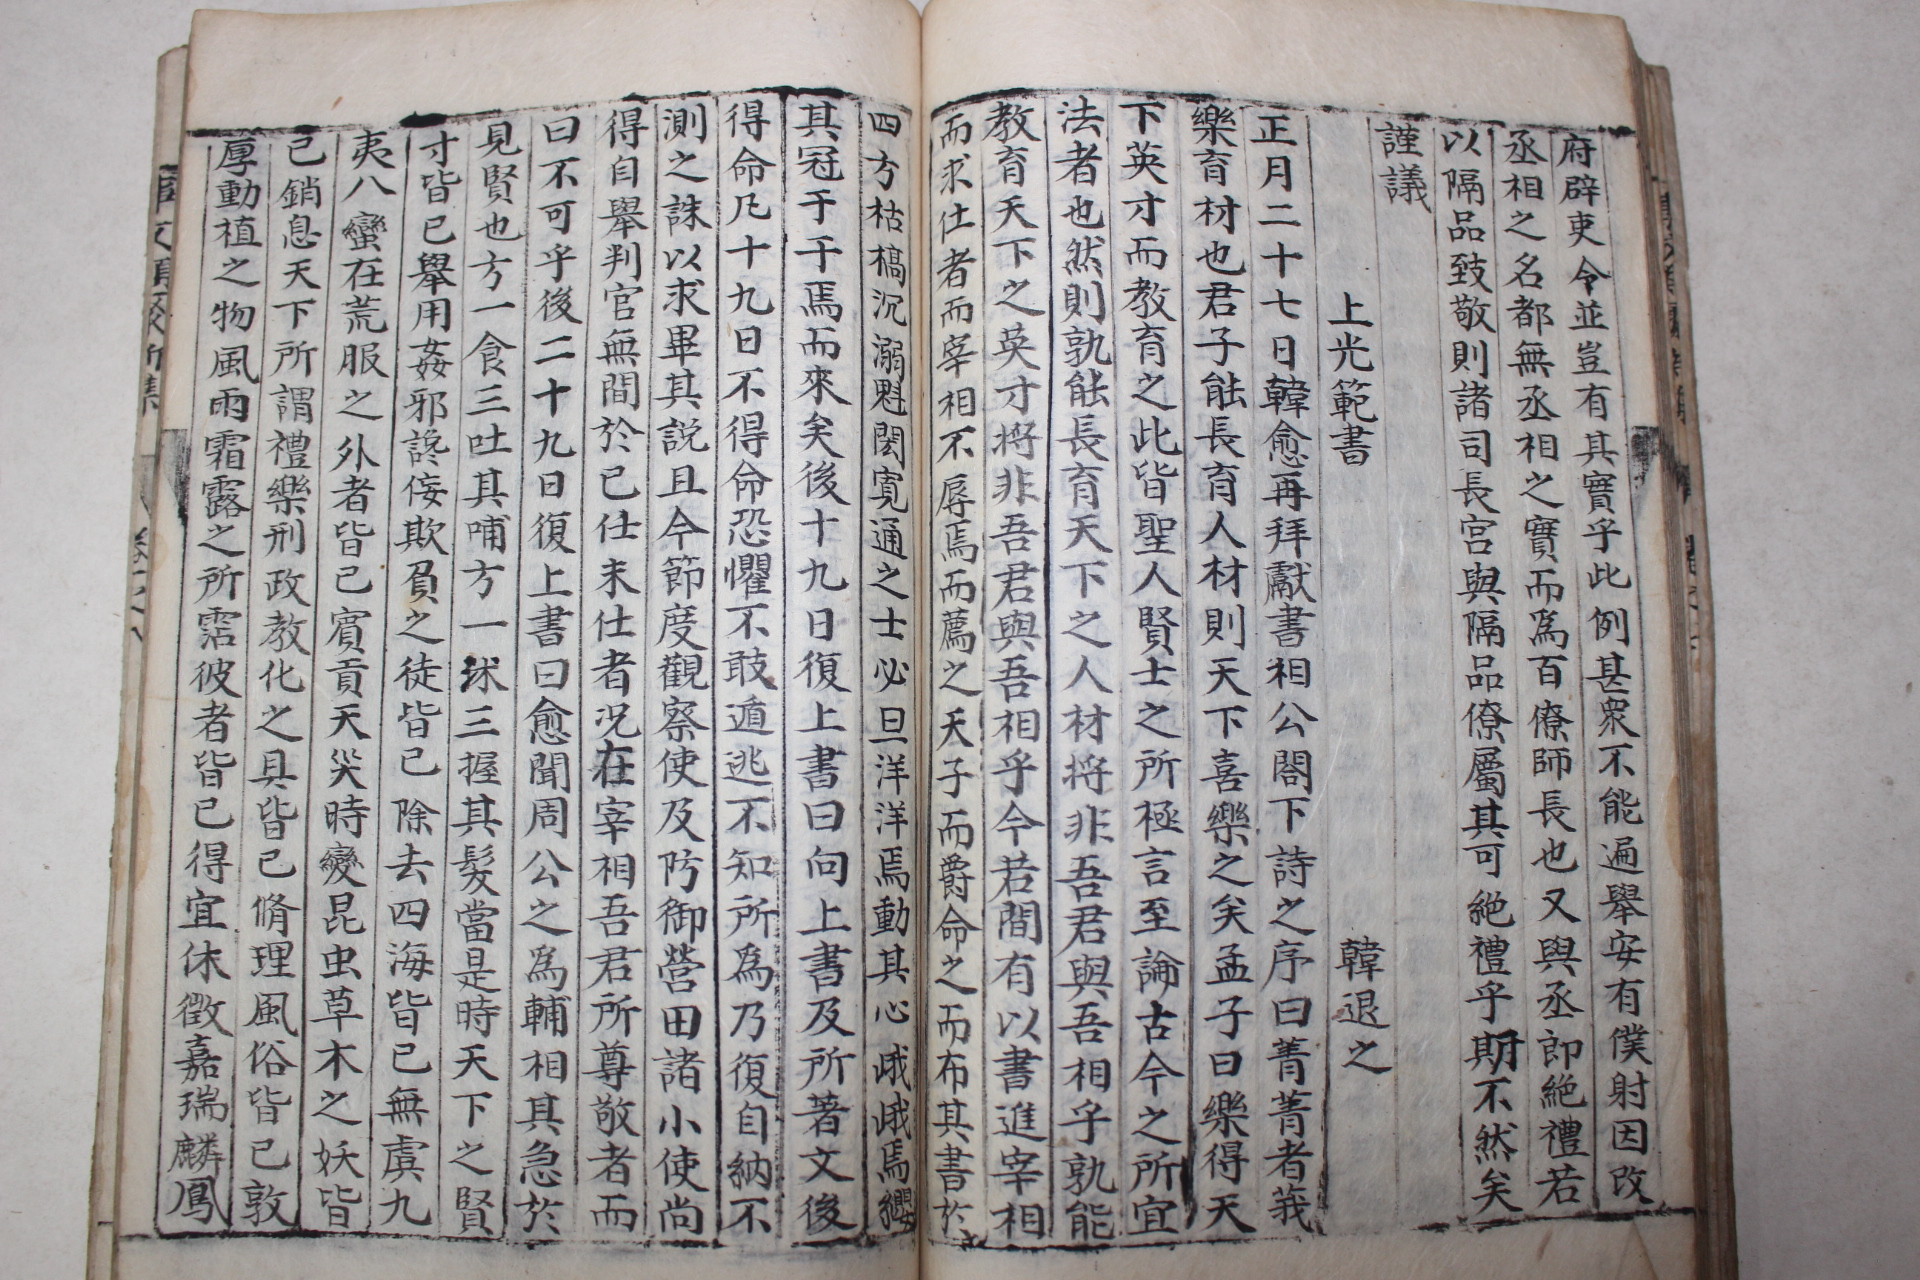 府辟吏令並豈有其實乎此例甚衆不能遍舉安有僕射因改
丞相之名都無丞相之實而爲百僚師長也又與丞郎絶禮若
以隔品致敬則諸司長官與隔品僚屬其可絶禮乎期不然矣
謹議
上光範書 韓退之
正月二十七日韓愈再拜獻書相公閤下詩之序曰菁菁者莪
樂育材也君子能長育人材則天下喜樂之矣孟子曰樂得天
下英才而教育之此皆聖人賢士之所極言至論古今之所宜
法者也然則孰能長育天下之人材将非吾君與吾相乎孰能
教育天下之英才将非吾君與吾相乎今若聞有以書進宰相
而求仕者而宰相不辱焉而薦之天子而爵命之而布其書於
四方枯槁沉溺魁閎寛通之士必且洋洋焉動其心峨峨焉纓
其冠于于焉而來矣後十九日復上書曰向上書及所著文後
得命凡十九日不得命恐懼不敢遁逃不知所爲乃復自納不
測之誅以求畢其説且今節度觀察使及防御營田諸小使尚
得自舉判官無間於已仕未仕者况在宰相吾君所尊敬者而
曰不可乎後二十九日復上書曰愈聞周公之爲輔相其急於
見賢也方一食三吐其哺方一沐三握其髮當是時天下之賢
才皆已舉用姦邪讒佞欺負之徒皆已除去四海皆已無虞九
夷八蠻在荒服之外者皆已賓貢天災時變昆虫草木之妖皆
已銷息天下所謂禮樂刑政教化之具皆已脩理風俗皆已敦
厚動植之物風雨霜露之所霑彼者皆已得宜休徵嘉瑞麟鳳